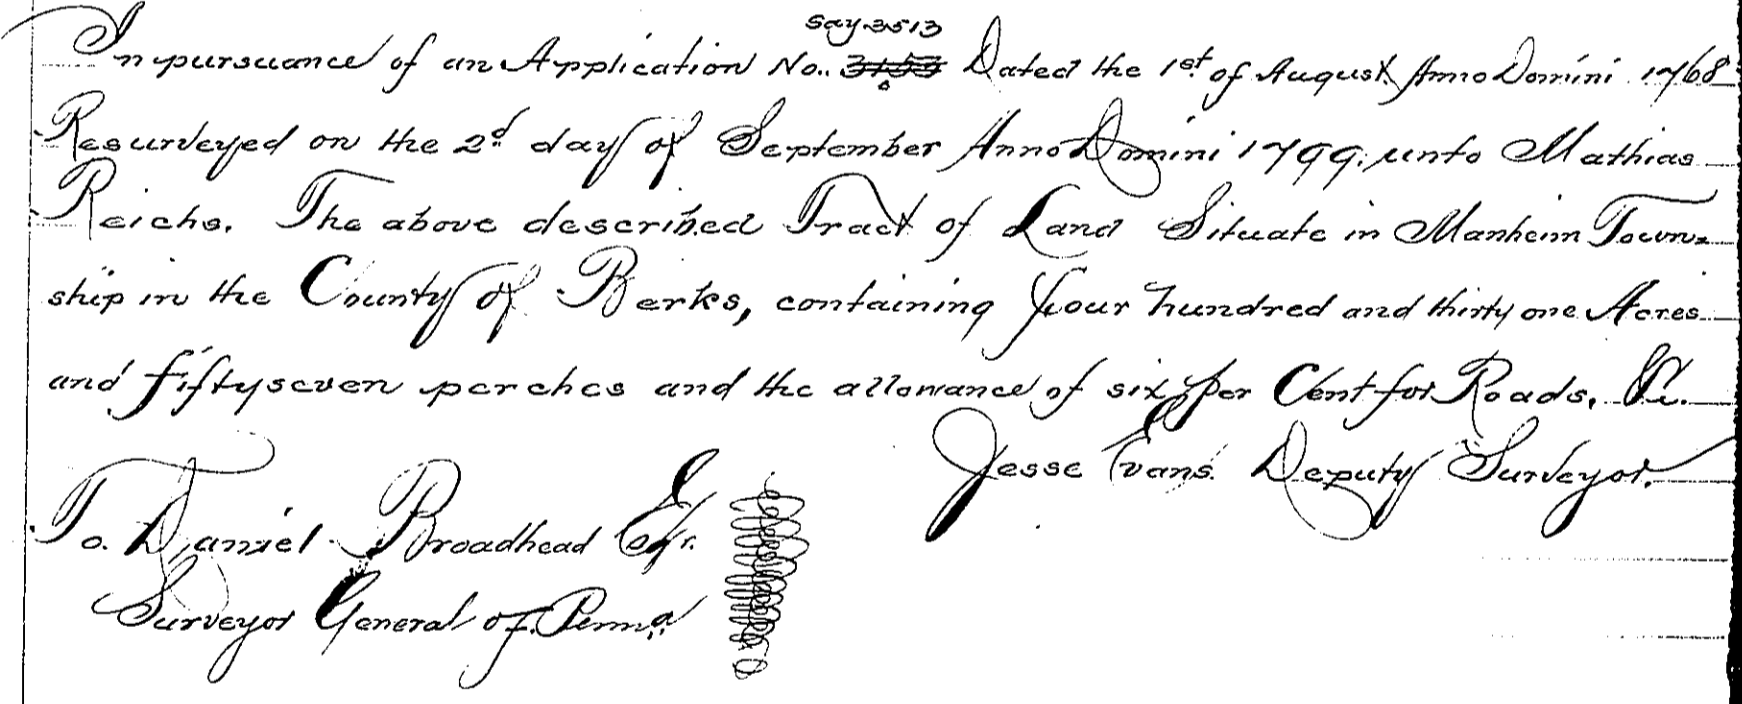 say 3513
In pursuance of an Application No. 3153 Dated the 1st of August Anno Domini 1768
Resurveyed on the 2d day of September Anno Domini 1799, unto Mathias
Reichs. The above described Tract of Land Situate in Manheim Town=
ship in the County of Berks, containing four hundred and thirty one Acres
and fifty seven perches and the allowance of six per Cent for Roads, &c.
Jesse Evans Deputy Surveyor.
To Daniel Broadhead Esqr.
Surveyor General of Penna